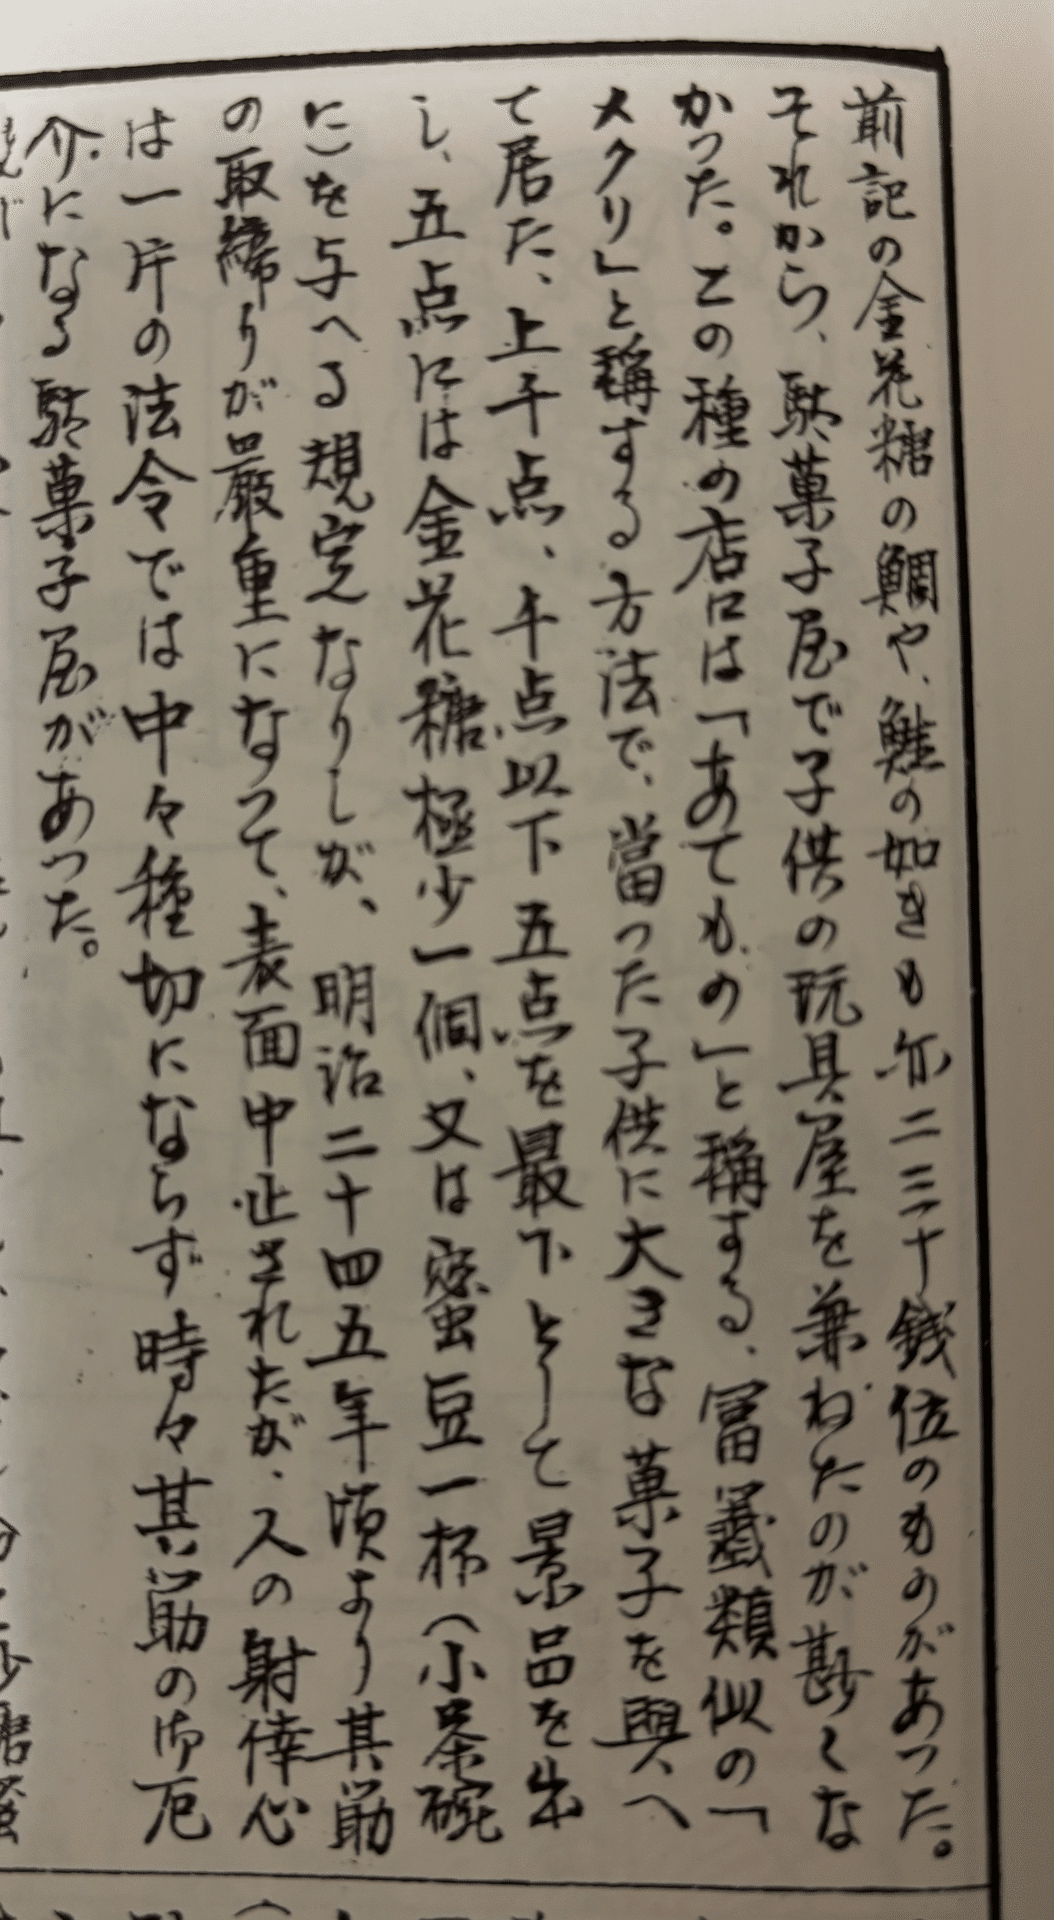 前記の金花糖の鯛や、鮭の如きも亦二三十銭位のものがあった。
それから、駄菓子屋で子供の玩具屋を兼ねたのが尠くな
かった。この種の店には「あてもの」と称する、富籤類似の「
メクリ」と稱する方法で、當った子供に大きな菓子を與へ
て居た、上千点、千点以下五点を最下として景品を出
し、五点には金花糖極少一個、又は蜜豆一杯（小茶碗
に）を与へる規定なりしが、明治二十四五年頃より其筋
の取締りが厳重になって、表面中止されたが、人の射倖心
は一片の法令では中々種切にならず時々其筋の御厄
介になる駄菓子屋があった。